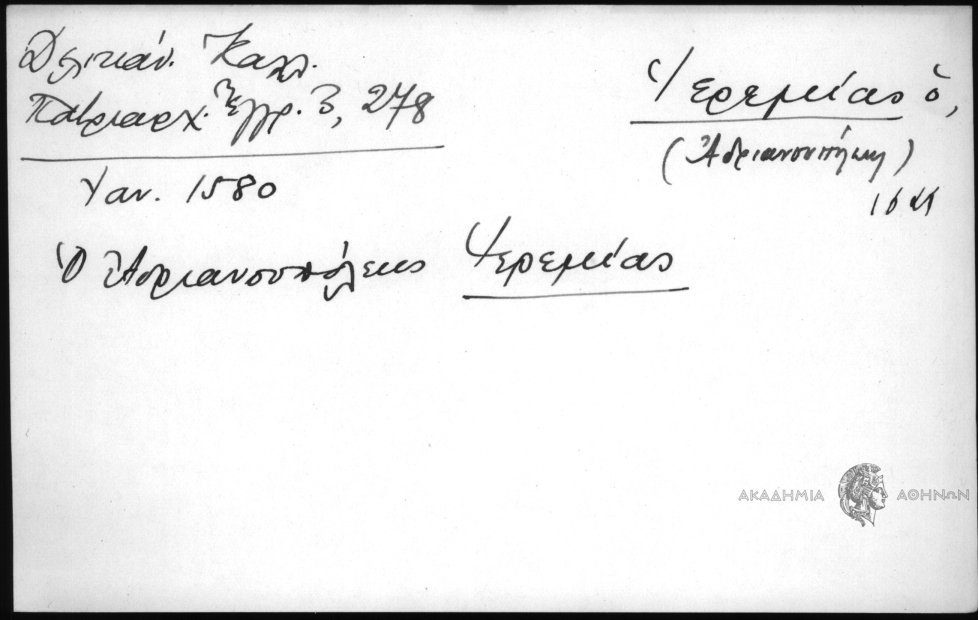 Δελικάν. Καλλ.
Πατριαρχ. Ἔγγρ. 3, 278
Ἰαν. 1580
Ὁ Ἀδριανουπόλεως Ἱερεμίας
Ἱερεμίας ὁ,
(Ἀδριανουπόλεως)
ΑΚΑΔΗΜΙΑ ΑΘΗΝΩΝ